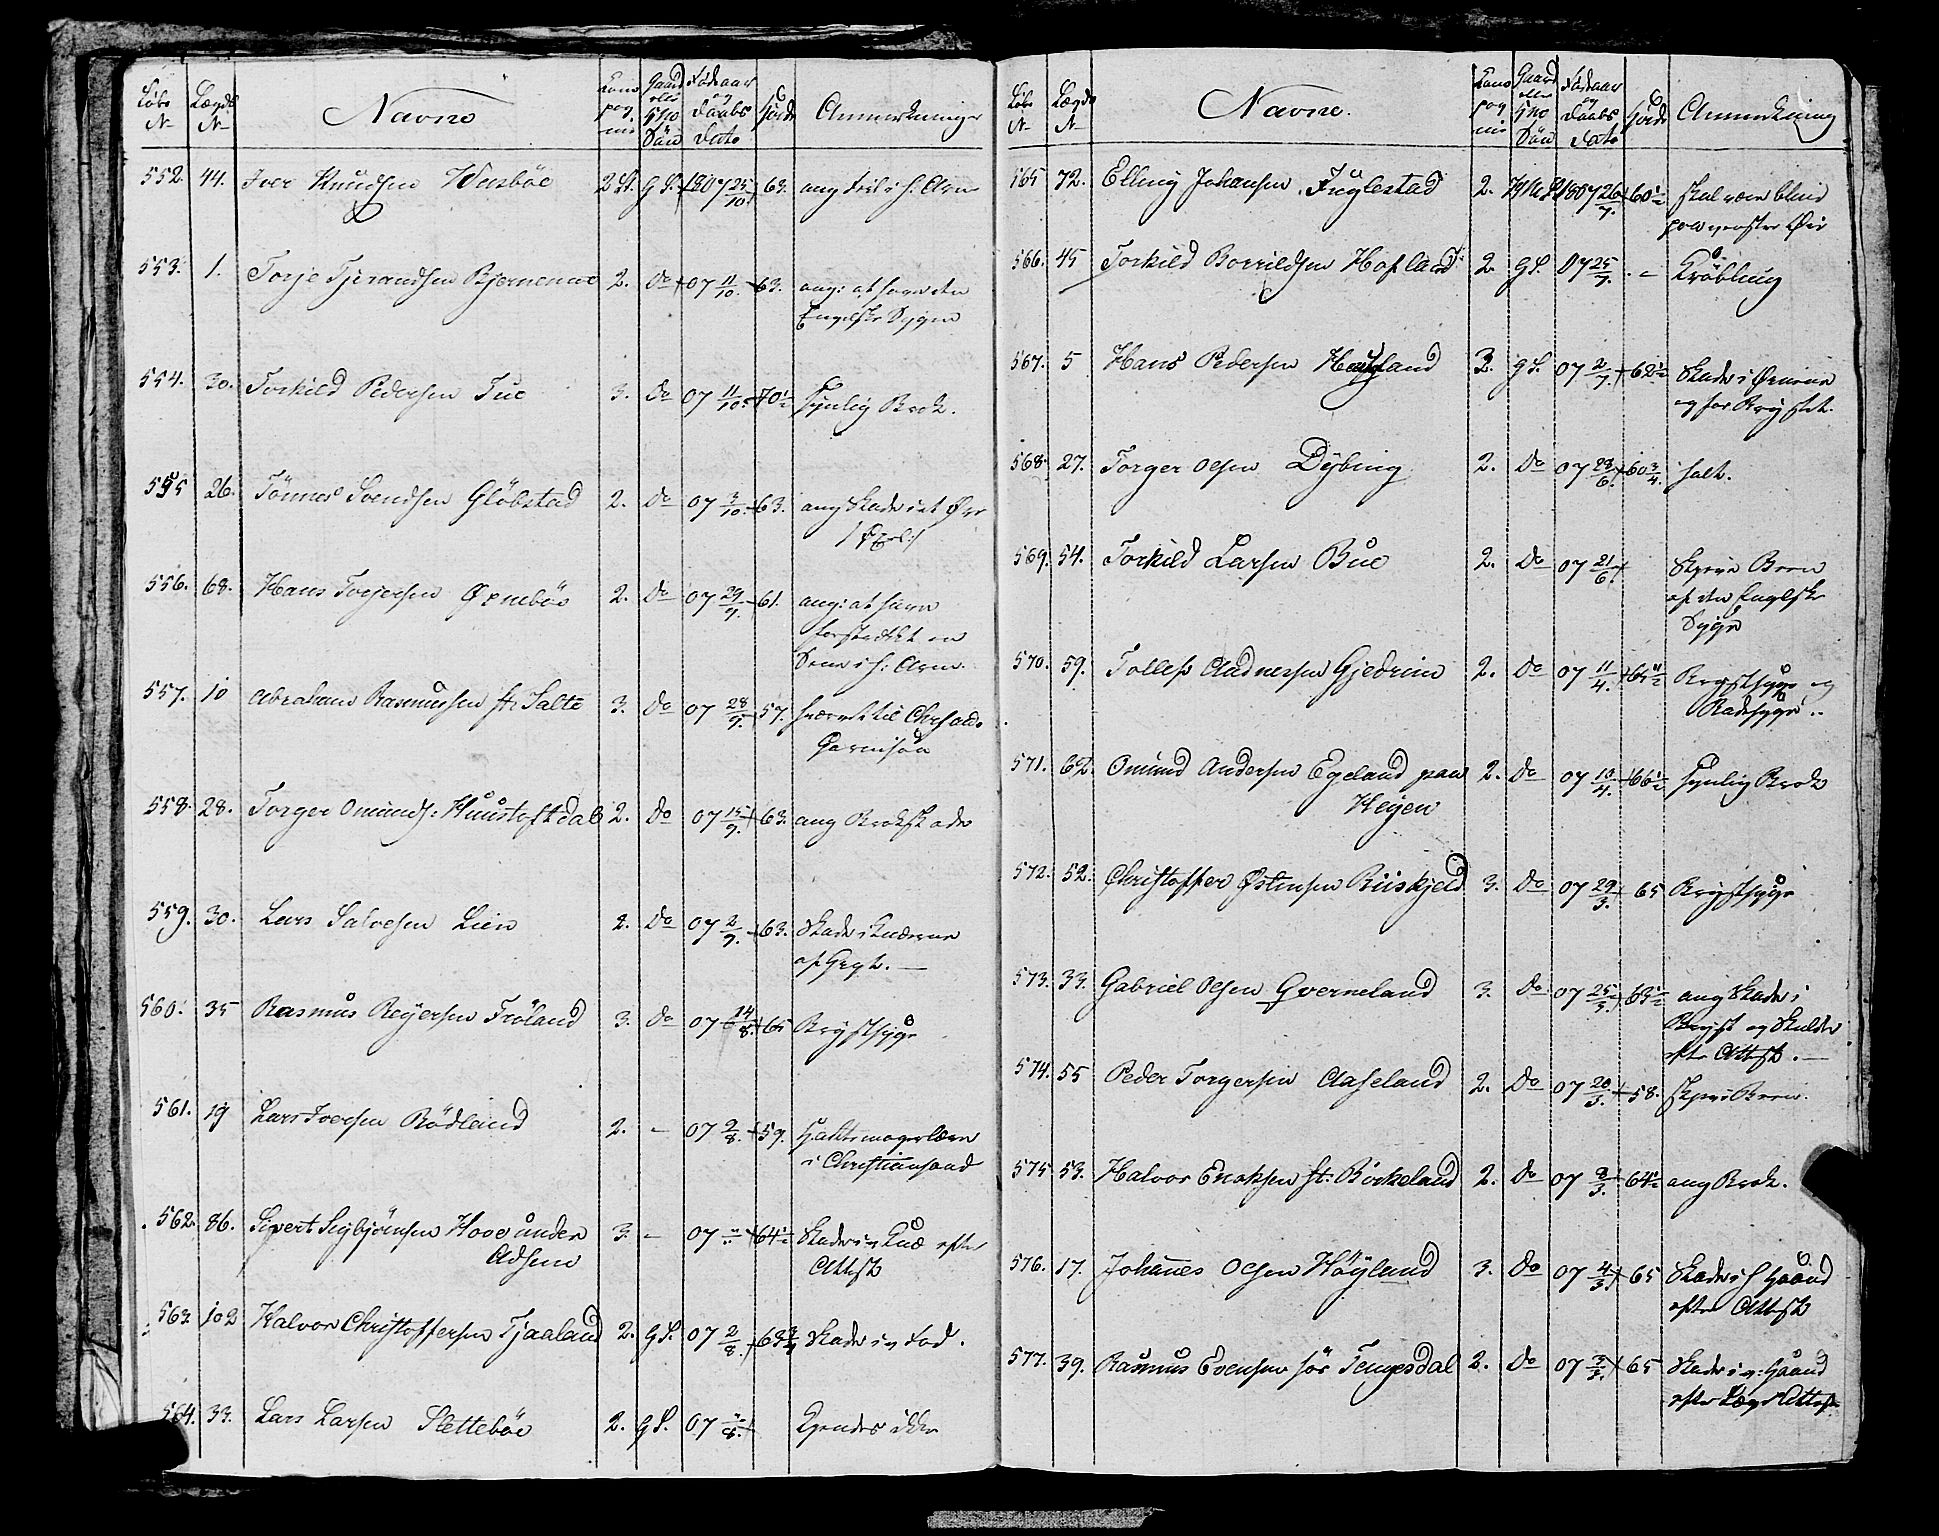 Løbe N Lægds N Navne Kompagnie Gaard eller Hmd Søn Fødeaar og Daabs Dato Høide Anmerkninger
552. 44. Iver Knudsen Weisbøe 2 G S. 1807 25/10 63. ang feil i h: Arm
553. 1. Torje Tjerandsen Bjernemoe 2. Do 07 11/10 63. ang: at have den
Engelske Syge
554. 30. Torkild Pedersen Tue 3. Do 07 11/10 70½ synlig Brok.
555 26. Tønnes Svendsen Gløbstad 2. Do 07 3/10 63. ang Skade i et Øie
556. 68. Hans Torjersen Ørnebøe 2. Do 07 29/9. 61. ang: at have
forstrækt en
Sene i h: Arm
557. 10 Abraham Rasmussen st: Salte 3. Do 07 28/9. 57. hværvet til Chrsands
Garnison
558. 28. Torger Omunds: Hunstoftdal 2. Do 07 15/9. 63. ang Brokskade
559. 30. Lars Salvesen Lien 2. Do 07 2/9. 63. Skade i Knæerne
af Gigt. —
560. 35 Rasmus Reyersen Frøland 3. Do 07 14/8. 65 Brystsyge
561. 19 Lars Iversen Rødland 2. - 07 2/8. 59. Hattemagerlære
i Christiansand
562. 86. Sivert Sigbjønsen Hove under 3. - 07 " 64½ Skade i v Knæ efter
Adsem Attest
563. 102 Halvor Christoffersen Tjaaland 2. G S. 07 2/8. 63¾ Skade i v Fod.
564. 33. Lars Larsen Slettebøe 2. G S. 07 Kjendes ikke
Løbe N Lægds N Navne. Kompagnie Gaard eller Hmd Søn Fødeaar og Daabs Dato Høide Anmerkning
565 72. Elling Johansen Fuglestad 2. 1807 26/7. 60½ skal være blind
paa venstre Øie
566. 45 Torkild Borrildsen Hofland 2. G S. 07 25/7. - Krøbling
567. 5 Hans Pedersen Haugland 3. G S. 07 2/7. 62½ Skade i Ørnene
og for Brystet.
568. 27. Torger Olsen Dybing 2. Do 07 28/6. 60¾. halt.
569. 54. Torkild Larsen Bue 2. Do 07 21/6 Skjeve Been
af den Engelske
Syge
570. 59. Tollef Aadnesen Gjedrem 2. Do 07 11/4. 65½ Brystsyge og
Radesyge..
571. 62. Omund Andersen Egeland paa 2. Do 07 10/4. 66½ synlig Brok
Heyen
572. 52. Christoffer Østensen Riiskjeld 3. Do 07 29/3. 65 Brystsyge
573. 33. Gabriel Olsen Qverneland 3. Do 07 25/3. 63½ ang Skade i
Bryst og Skulder
efter Attest. —
574. 55 Peder Torgersen Aaseland 2. Do 07 20/3. 58. skjeve Been.
575 53. Halvor Enoksen st: Birkeland 2. Do 07 8/3. 64½ ang Brok.
576. 17. Johannes Olsen Høyland 3. Do 07 4/3. 65 Skade i h Haand
efter Attest
577. 39. Rasmus Evensen sør Tengesdal 2. Do 07 3/3. 65 Skade i v: Haand
efter Læge Attest